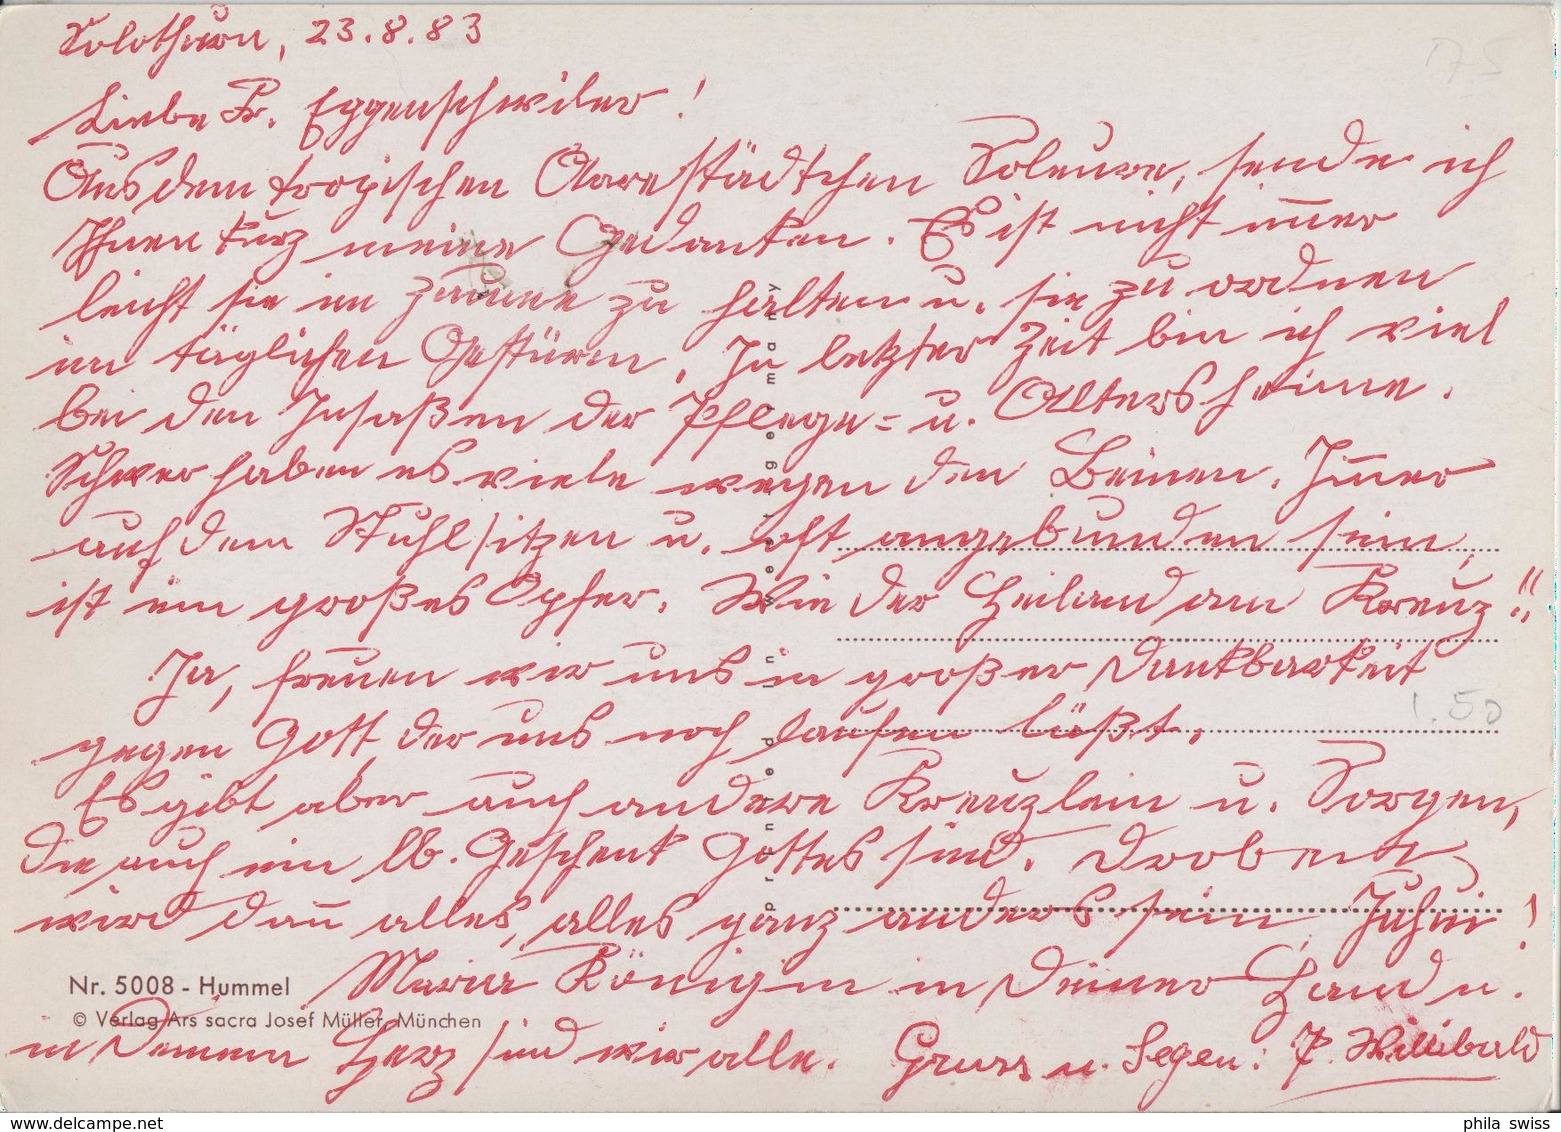 Solothurn, 23.8.83
175
Liebe Fr. Eggenschwiler!
Aus dem tropischen Aarestädtchen Soleure, sende ich
Ihnen kurz meine Gedanken. Es ist nicht im̄er
leicht sie im Zaume zu halten u. sie zu ordnen
im täglichen Gestürm. In letzter Zeit bin ich viel
bei den Insaßen der Pflege= u. Altersheime.
Schwer haben es viele wegen den Beinen. Im̄er
auf dem Stuhl sitzen u. oft angebunden sein,
ist ein großes Opfer. Wie der Heiland am Kreuz!!
Ja, freuen wir uns in großer Dankbarkeit
gegen Gott der uns noch laufen läßt.
1.50
Es gibt aber auch andere Kreuzlein u. Sorgen,
die auch ein lb. Geschenk Gottes sind. Droben
wird dan̄ alles, alles ganz anders sein. Juhui!
Maria Königin in Deiner Hand u.
in Deinem Herz sind wir alle. Gruss u. Segen: P. Willibald
Nr. 5008 - Hummel
© Verlag Ars sacra Josef Müller, München
Printed in West-Germany
www.delcampe.net
phila_swiss